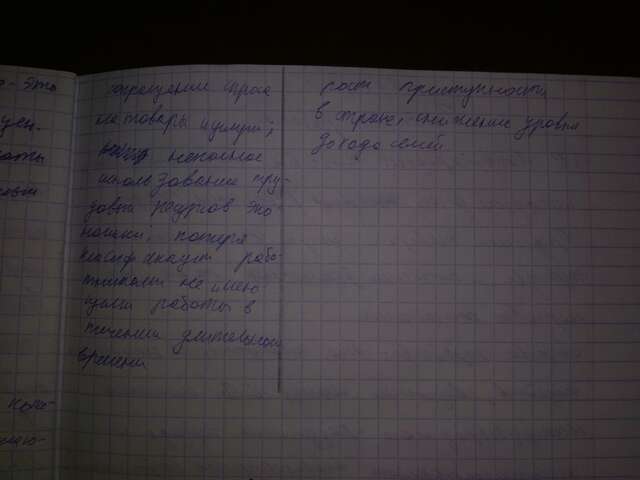 о - это
сокращение спроса
на товары и услуги;
неполное
использование тру-
довых ресурсов эко-
номики; потеря
квалификации рабо-
тниками не имею-
щими работы в
течении длительного
времени
рост преступности
в стране, снижение уровня
дохода семей.